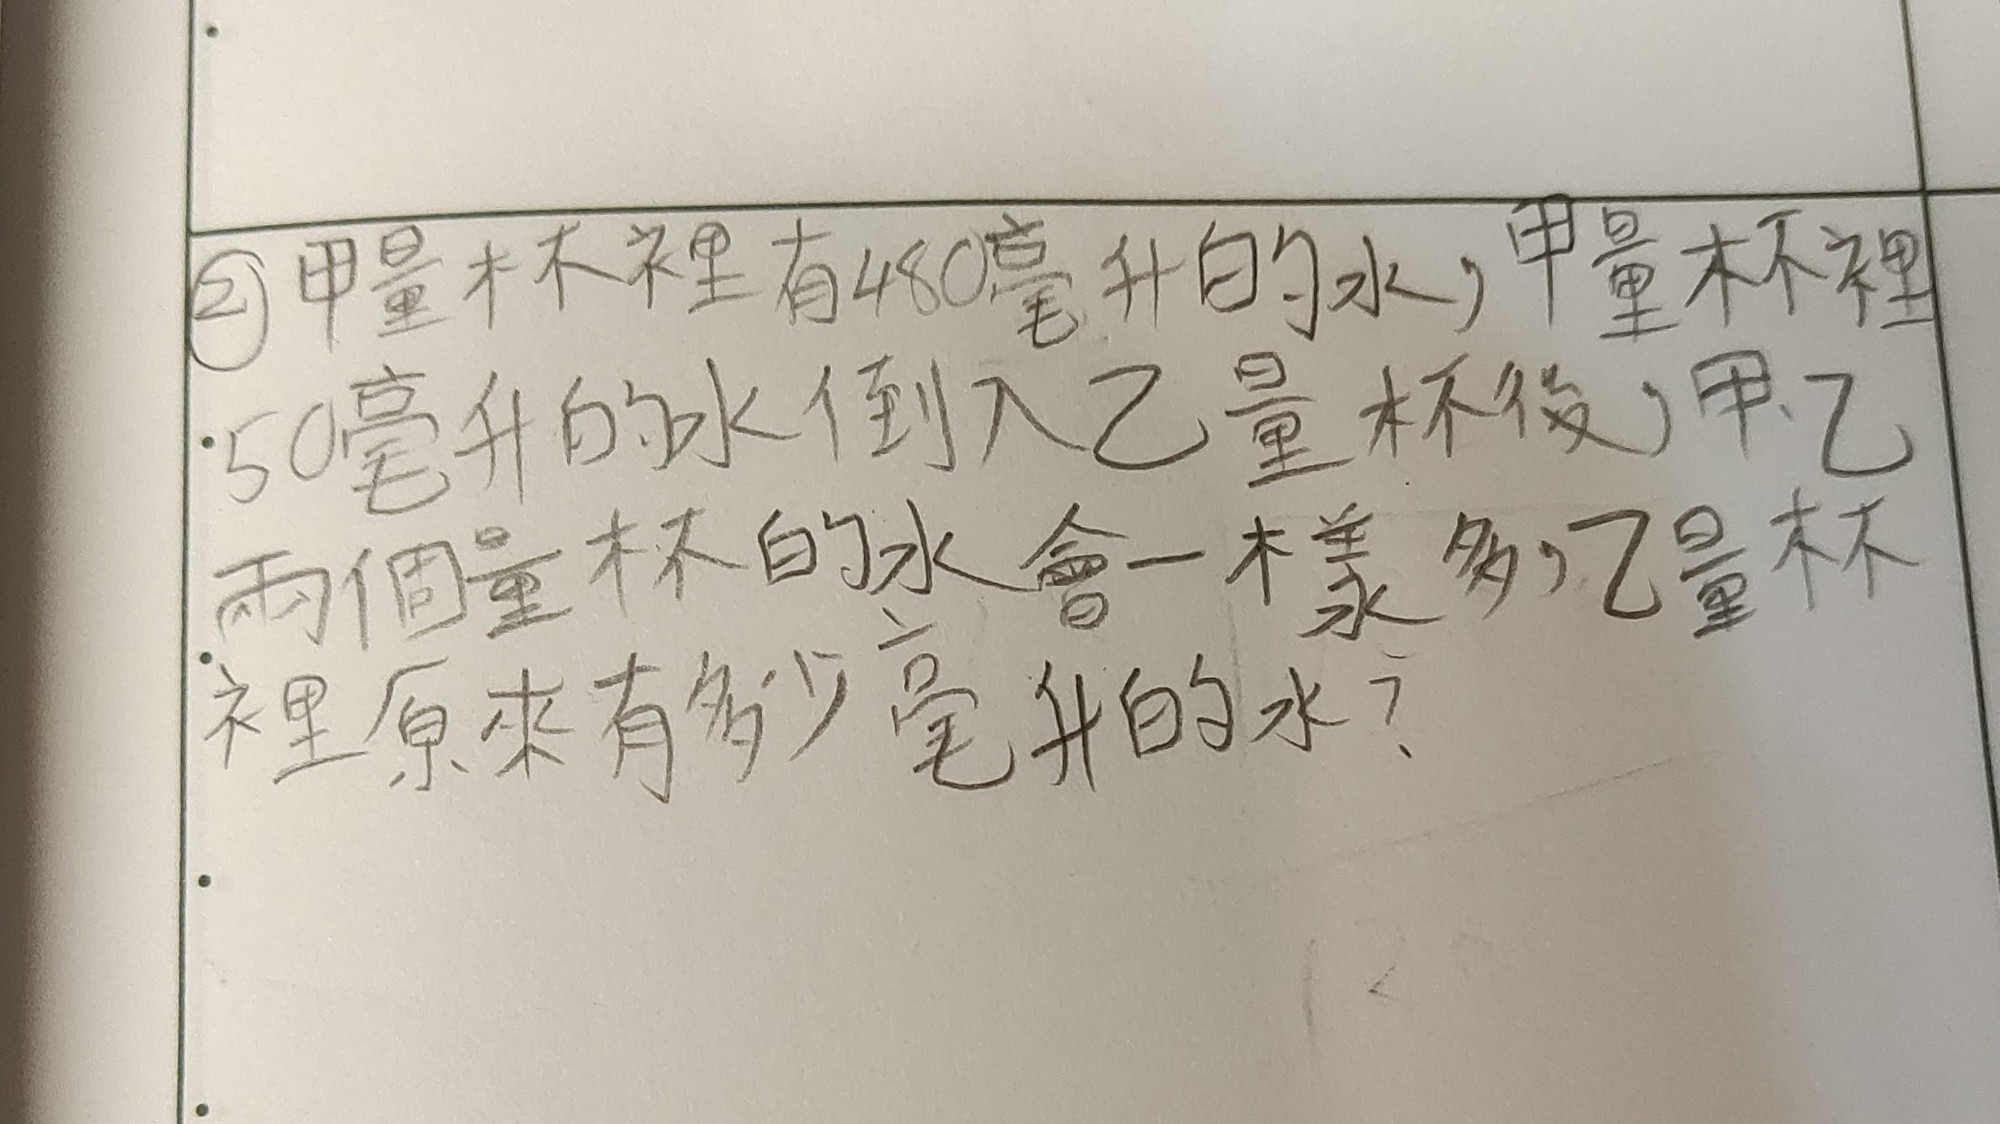 ②甲量杯裡有480毫升的水，甲量杯裡
50毫升的水倒入乙量杯後，甲、乙
兩個量杯的水會一樣多，乙量杯
裡原來有多少毫升的水？